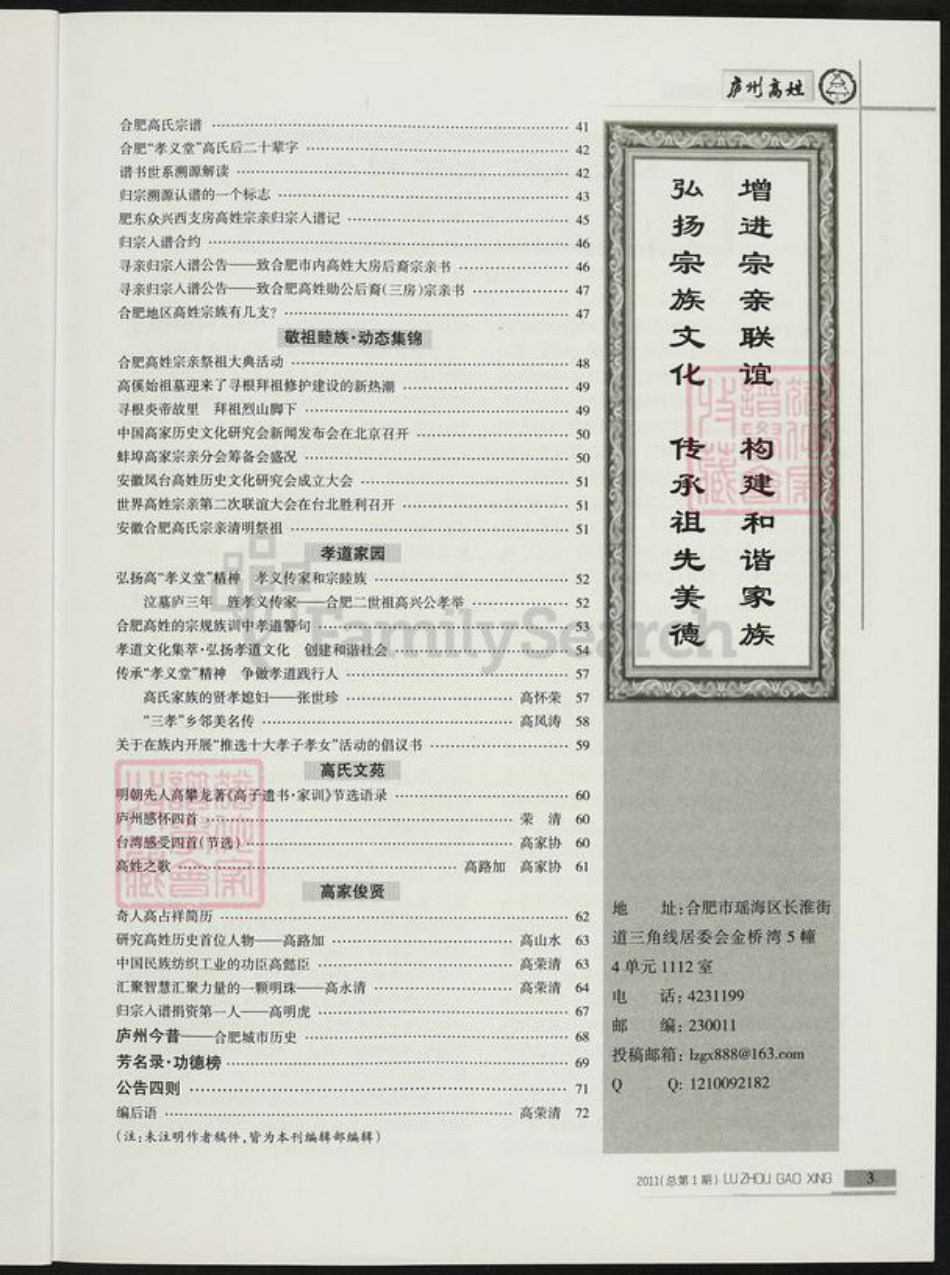 庐州高姓
合肥高氏宗谱 41
合肥“孝义堂”高氏后二十辈字 42
谱书世系溯源解读 42
归宗溯源认谱的一个标志 43
肥东众兴西支房高姓宗亲归宗入谱记 45
归宗入谱合约 46
寻亲归宗入谱公告——致合肥市内高姓大房后裔宗亲书 46
寻亲归宗入谱公告——致合肥高姓勋公后裔(三房)宗亲书 47
合肥地区高姓宗族有几支? 47
敬祖睦族·动态集锦
合肥高姓宗亲祭祖大典活动 48
高傒始祖墓迎来了寻根拜祖修护建设的新热潮 49
寻根炎帝故里 拜祖烈山脚下 49
中国高家历史文化研究会新闻发布会在北京召开 50
蚌埠高家宗亲分会筹备会盛况 50
安徽凤台高姓历史文化研究会成立大会 51
世界高姓宗亲第二次联谊大会在台北胜利召开 51
安徽合肥高氏宗亲清明祭祖 51
孝道家园
弘扬高“孝义堂”精神 孝义传家和宗睦族 52
泣墓庐三年 旌孝义传家——合肥二世祖高兴公孝举 52
合肥高姓的宗规族训中孝道警句 53
孝道文化集萃·弘扬孝道文化 创建和谐社会 54
传承“孝义堂”精神 争做孝道践行人 57
高氏家族的贤孝媳妇——张世珍 高怀荣 57
“三孝”乡邻美名传 高凤涛 58
关于在族内开展“推选十大孝子孝女”活动的倡议书 59
高氏文苑
明朝先人高攀龙著《高子遗书·家训》节选语录 60
庐州感怀四首 荣 清 60
台湾感受四首(节选) 高家协 60
高姓之歌 高路加 高家协 61
高家俊贤
奇人高占祥简历 62
研究高姓历史首位人物——高路加 高山水 63
中国民族纺织工业的功臣高懿臣 高荣清 63
汇聚智慧汇聚力量的一颗明珠——高永清 高荣清 64
归宗入谱捐资第一人——高明虎 67
庐州今昔——合肥城市历史 68
芳名录·功德榜 69
公告四则 71
编后语 高荣清 72
(注:未注明作者稿件,皆为本刊编辑部编辑)
增进宗亲联谊 构建和谐家族
弘扬宗族文化 传承祖先美德
FamilySearch
地 址:合肥市瑶海区长淮街
道三角线居委会金桥湾5幢
4单元1112室
电 话:4231199
邮 编:230011
投稿邮箱:lzgx888@163.com
Q Q:1210092182
2011(总第1期) LUZHOU GAO XING 3